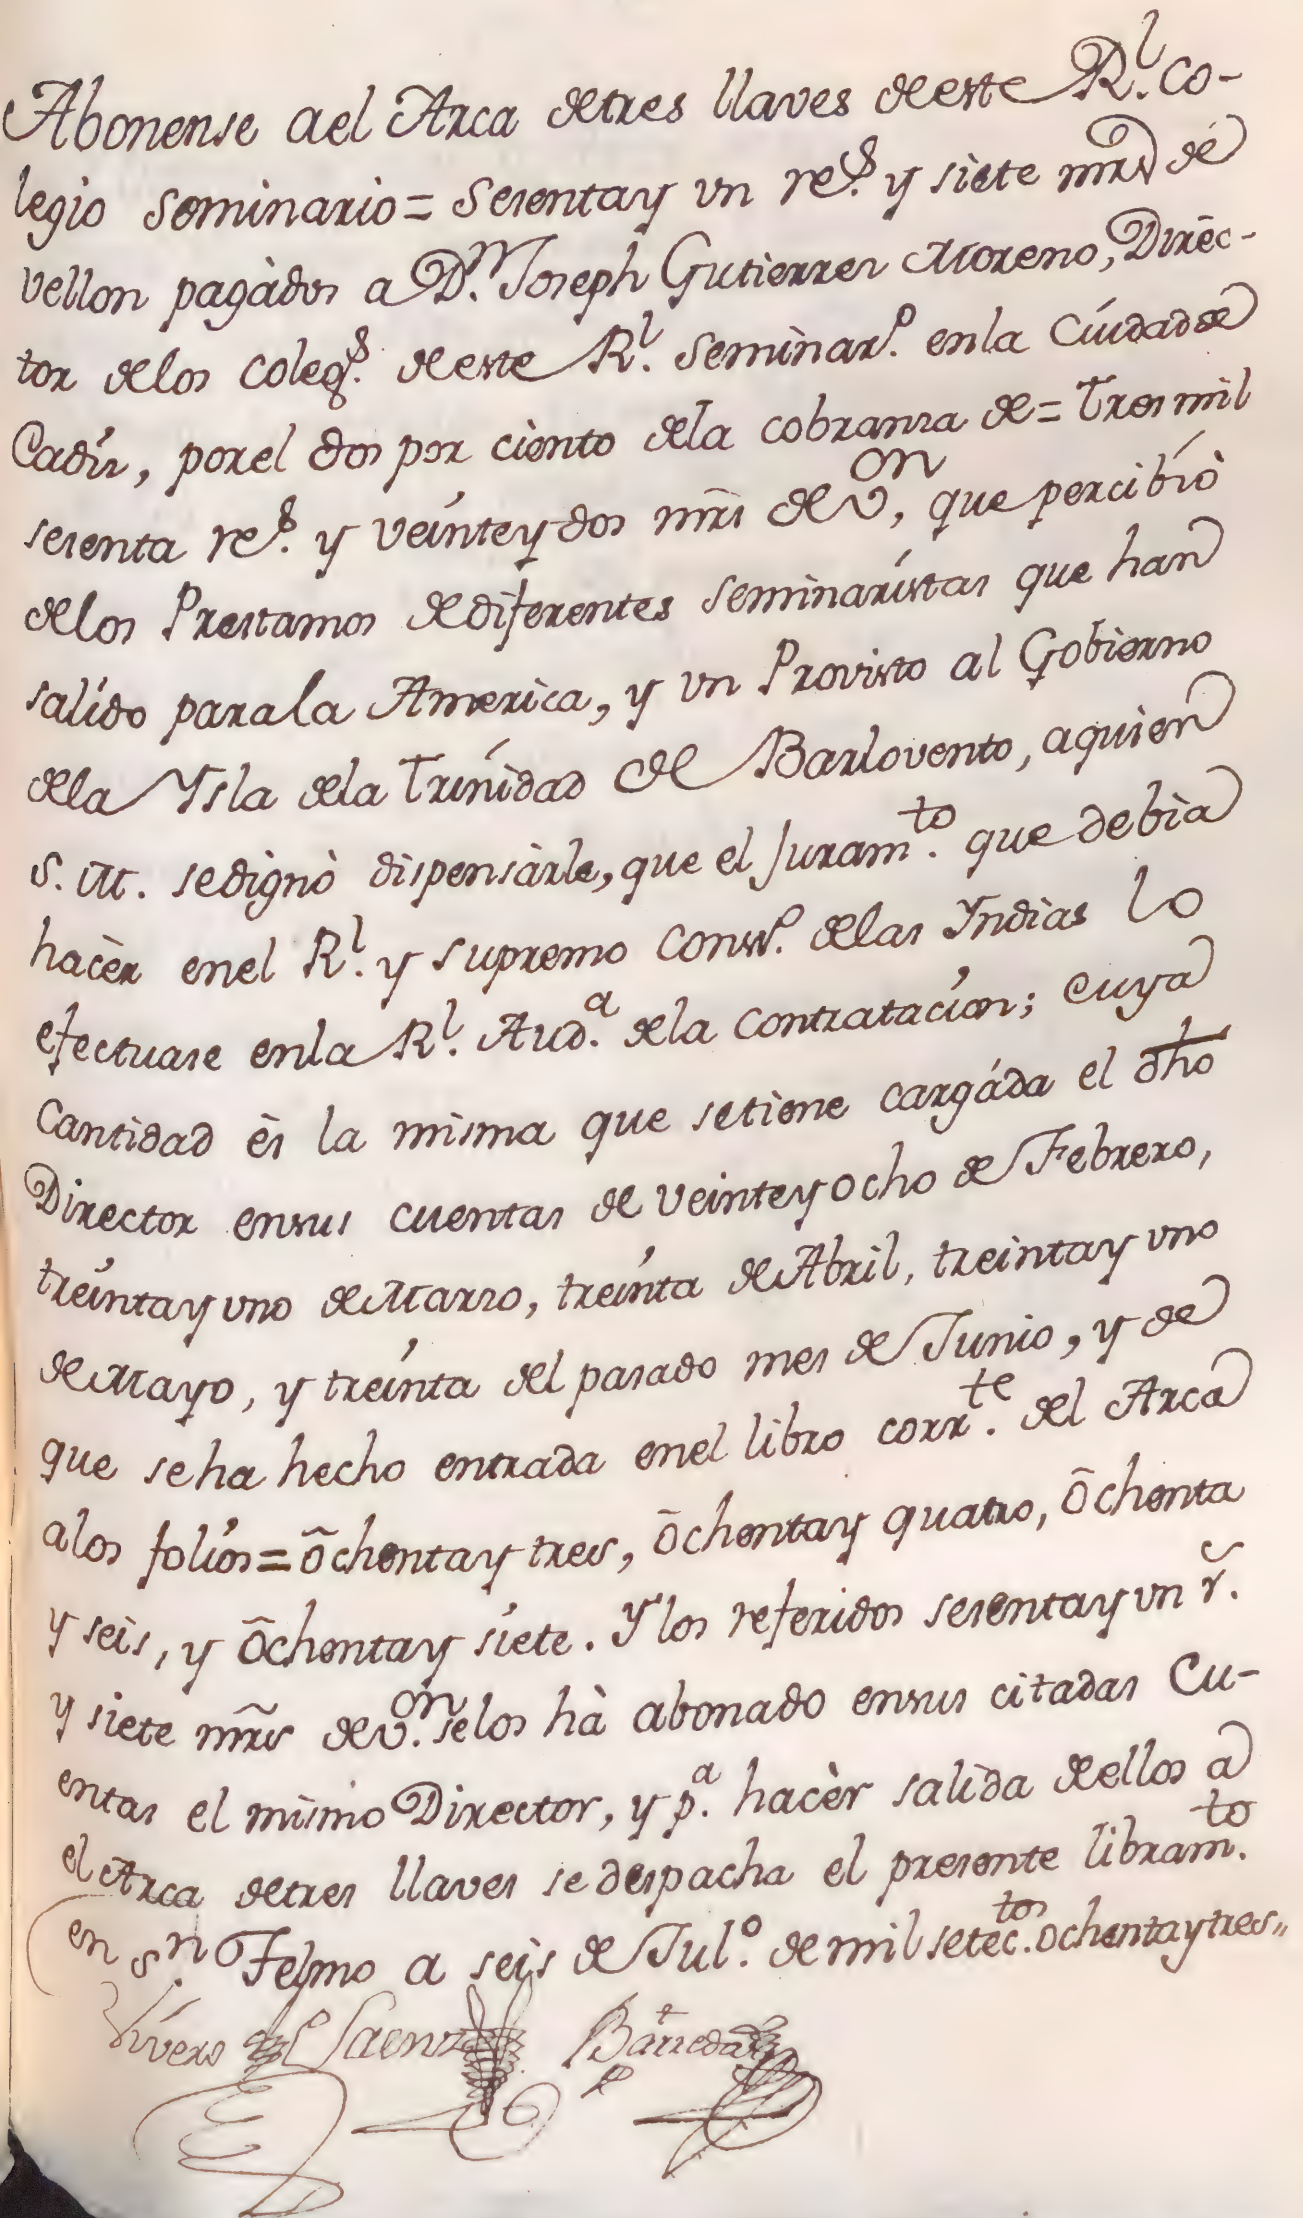 Abonense ael Arca detres llaves deeste Rl. Co-
legio Seminario = Sesentay un res. y siete mrs de
vellon pagàdos a Dn. Joseph Gutierrez Moreno, Direc-
tor delos colegs. deeste Rl. Seminaro. enla Ciudad de
Cadíz, porel dos por ciento dela cobranza de = Tres mil
sesenta res. y veíntey dos mrs de von, que percibíò
delos Prestamos de diferentes Seminarístas que han
salído parala America, y un Provisto al Gobierno
dela Ysla dela Trínidad de Barlovento, aquien
S. M. sedignò dispensàrle, que el Juramto. que debìa
hacèr enel Rl. y Supremo Conso. delas Yndias lo
efectuase enla Rl. Auda. dela Contratacíon; cuya
Cantidad ès la misma que setiene cargáda el dho
Director ensus cuentas de veintey ocho de Febrero,
treíntay uno de Marzo, treínta de Abril, treintay uno
de Mayo, y treínta del pasado mes de Junio, y de
que seha hecho entrada enel libro corrte. del Arca
alos folíos = õchentay tres, õchentay quatro, õchenta
y seis, y õchentay síete. Y los referidos sesentay un r̃.
y siete mrs̃ de von. selos hà abonado ensus citadas Cu-
entas el mismo Director, y pa. hacèr salìda deellos a
el Arca detres llaves se despacha el presente libramto.
en Sn Telmo a seis de Julo. de mil setectos. ochentay tres,,
Vívero Saenz Barreda